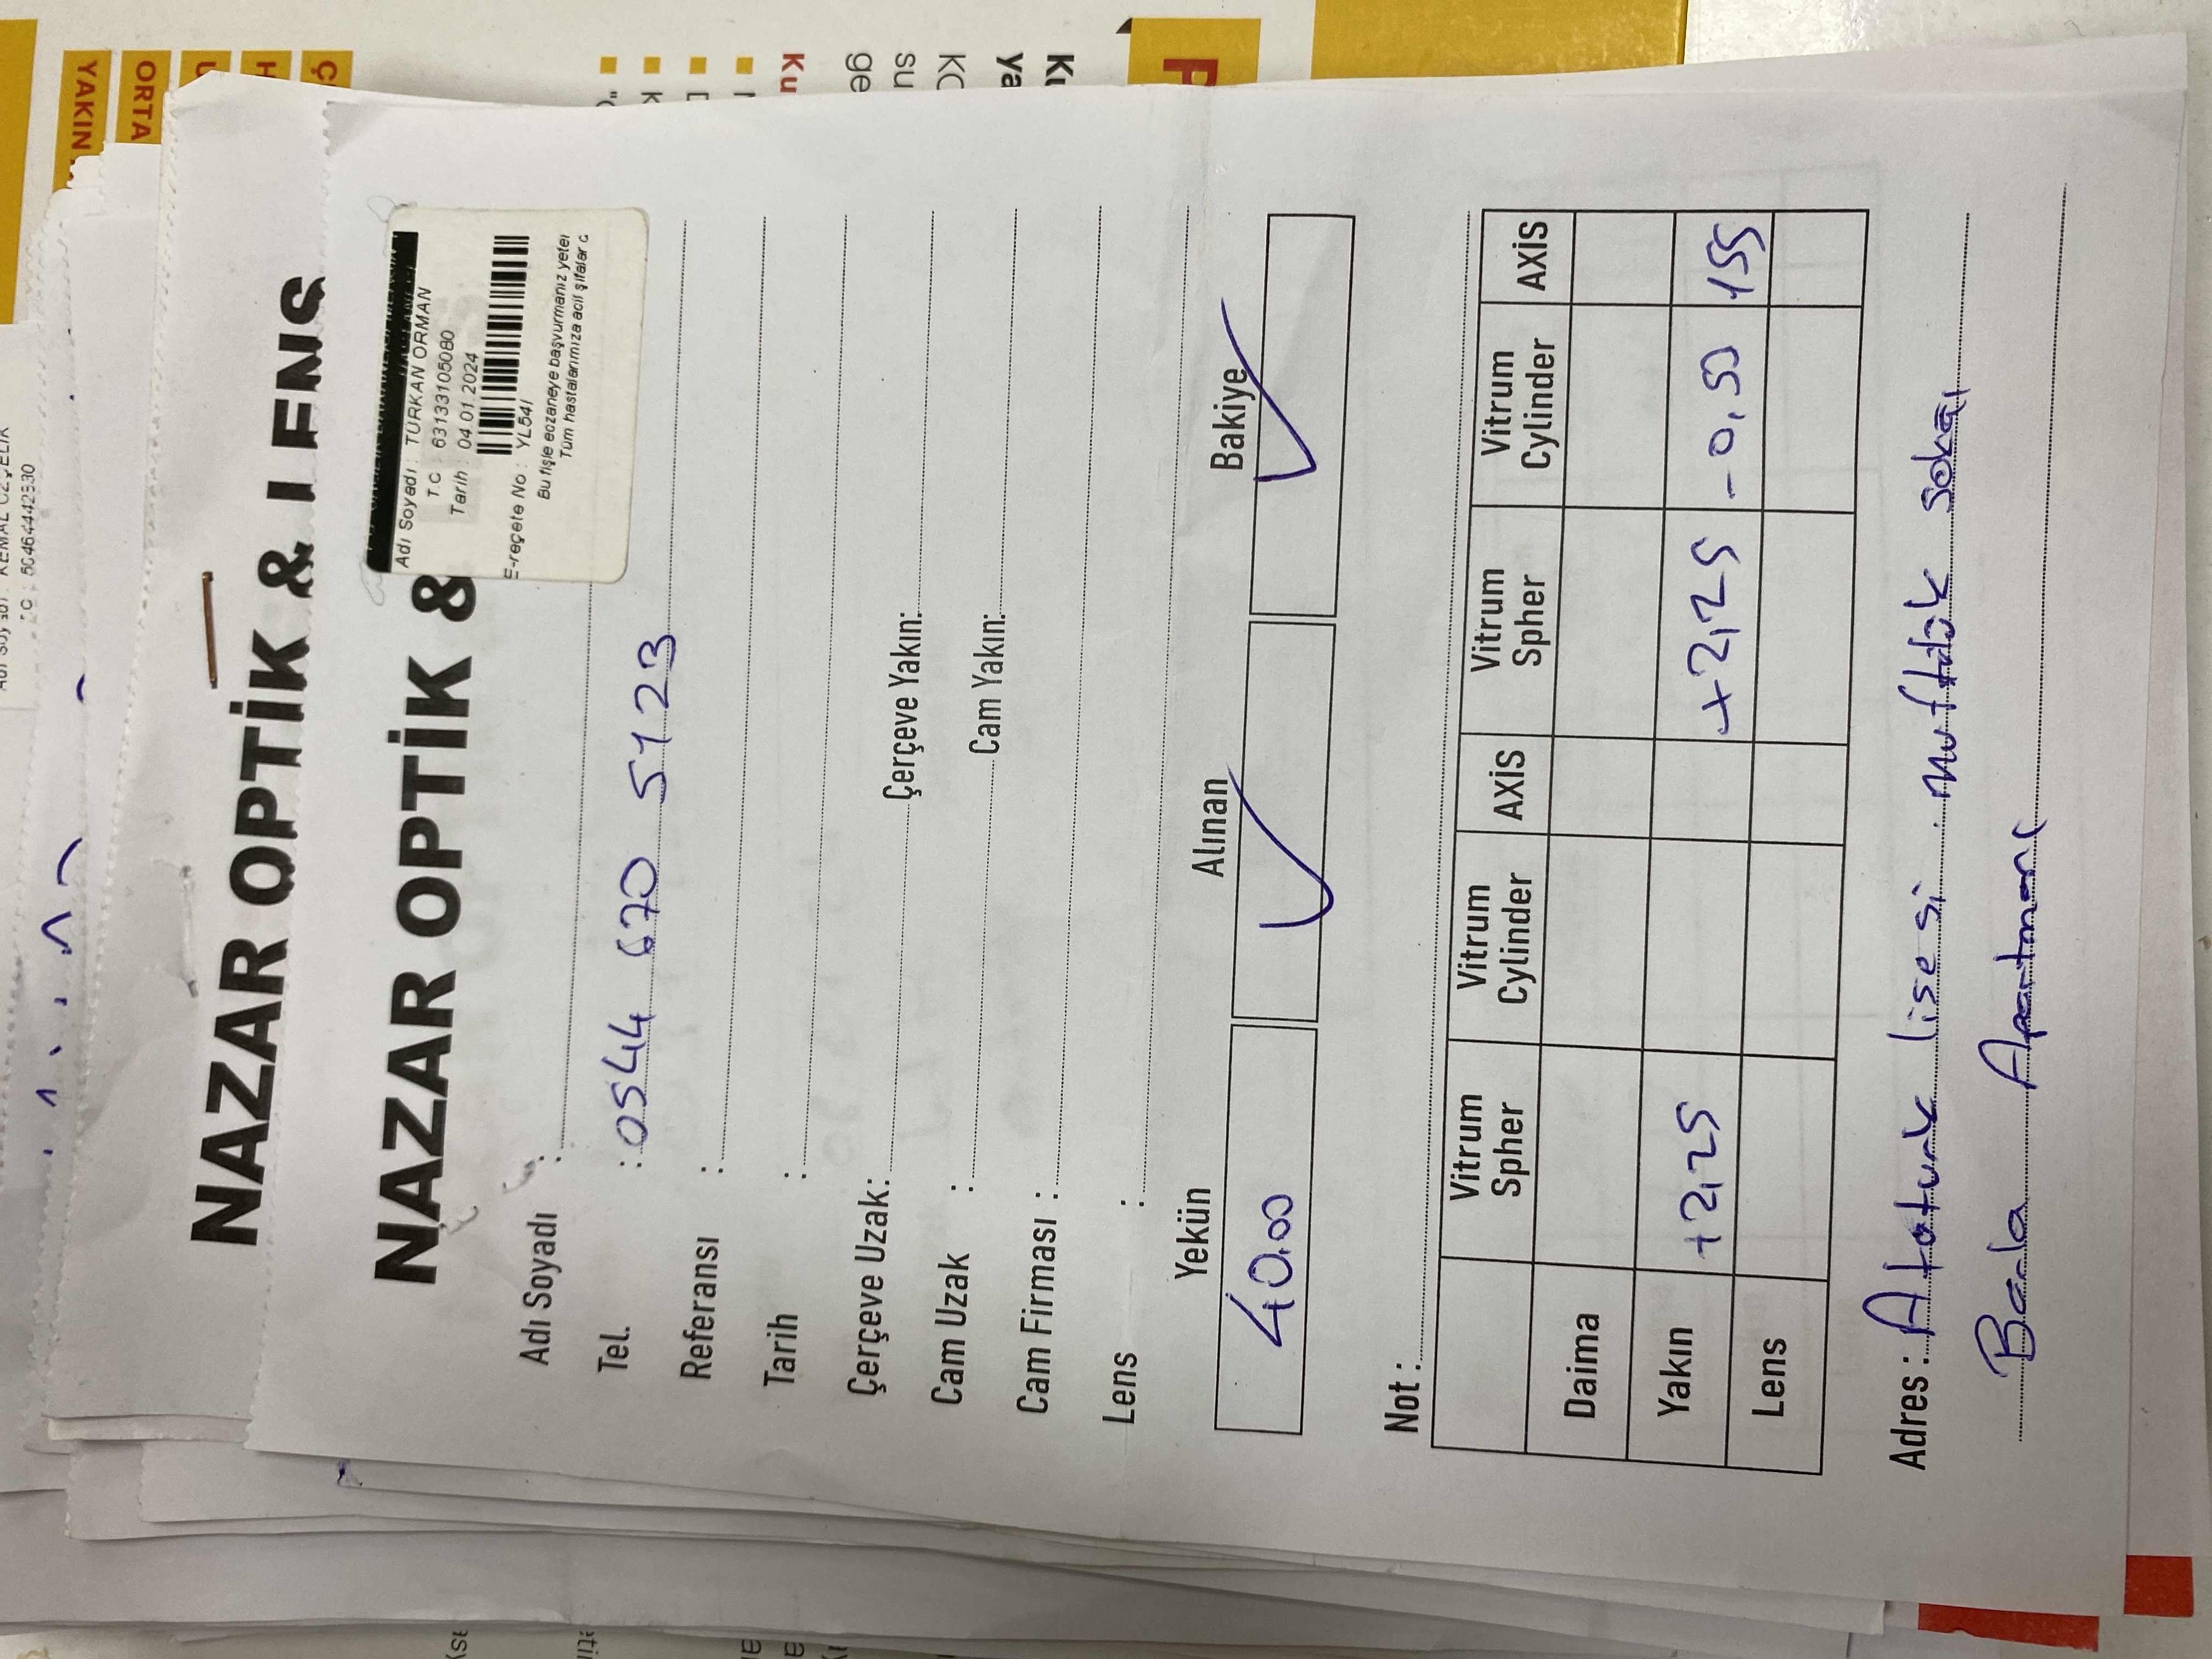 KEMAL ÖZÇELİK
50464442930
YAKIN
ORTA
NAZAR OPTİK & LENS
NAZAR OPTİK &
Adı Soyadı : TÜRKAN ORMAN
T.C. 63133105080
Tarih : 04.01.2024
E-reçete No : YL54I
Bu fişle eczaneye başvurmanız yeter
Tüm hastalarımıza acil şifalar
Adı Soyadı :
Tel. : 0544 670 5123
Referansı :
Tarih :
Çerçeve Uzak: Çerçeve Yakın:
Cam Uzak : Cam Yakın:
Cam Firması :
Lens :
Yekün Alınan Bakiye
40.00 ✓ ✓
Not :
Vitrum Spher Vitrum Cylinder AXİS Vitrum Spher Vitrum Cylinder AXİS
Daima
Yakın +2,25 +2,25 -0,50 155
Lens
Adres : Atatürk lisesi
Apartmanı